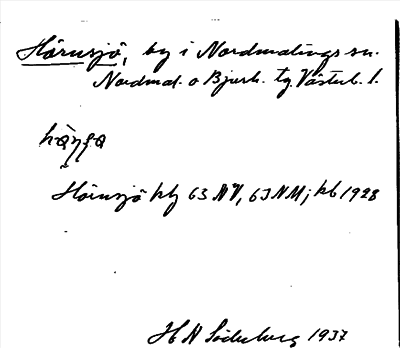 Hörnsjö, by i Nordmalings sn.
Nordmal. o Bjurh. tg. Västerb. l.
Hörnsjö 63 NV, 63 NM; kb 1928
H N Söderberg 1937